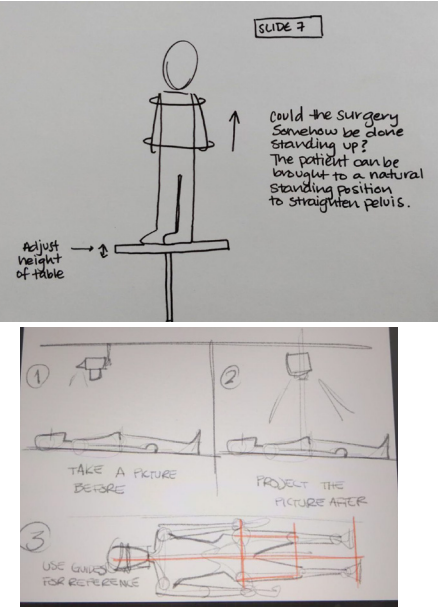 SLIDE 7
Could the surgery
Somehow be done
standing up?
The patient can be
brought to a natural
standing position
to straighten pelvis.
Adjust
height
of table
1
2
TAKE A PICTURE
BEFORE
PROJECT THE
PICTURE AFTER
3
USE GUIDES
FOR REFERENCE